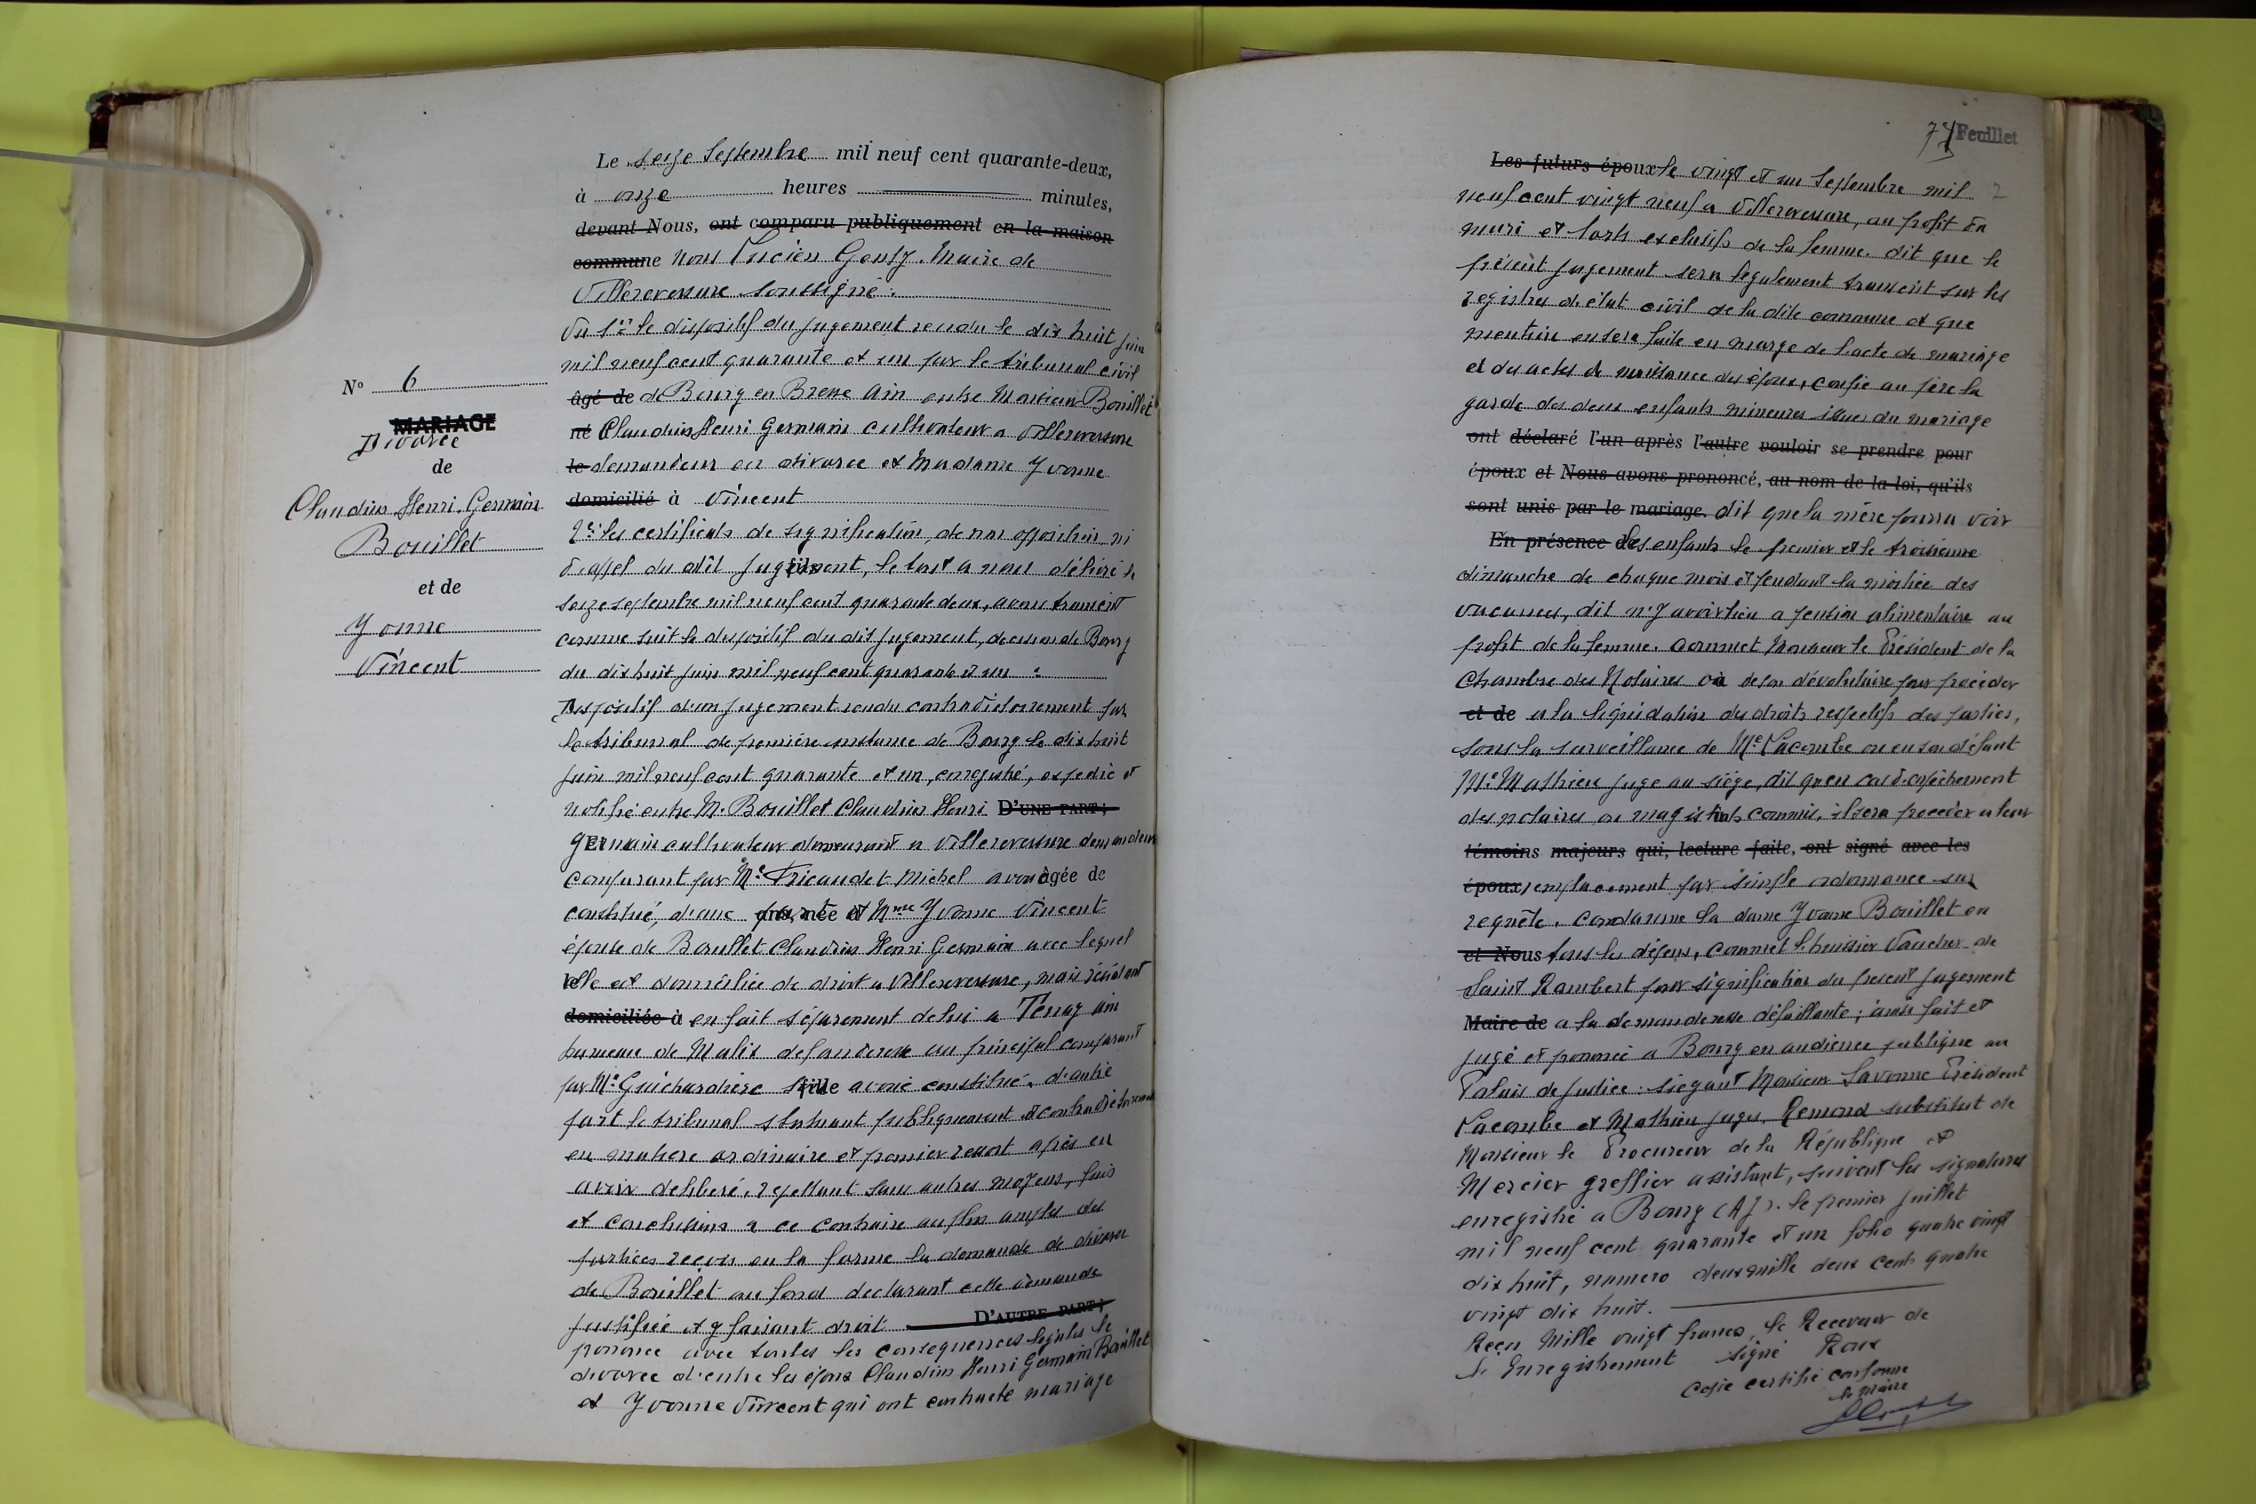 Le seize Septembre mil neuf cent quarante-deux,
à onze heures minutes,
devant Nous, ont comparu publiquement en la maison
commune Nous Lucien Goutz. Maire de
Villereversure soussigné.
Vu 1er le dispositif du jugement rendu le dix huit juin
mil neuf cent quarante et un par le tribunal civil
âgé de de Bourg en Bresse Ain entre Monsieur Bouillet
né Claudius Henri Germain cultivateur a Villereversure
le demandeur en divorce et Madame Yvonne
domicilié à Vincent
2e: les certificats de signification, de non opposition ni
d'appel du dit jugement, fils le tout a nous délivré le
seize septembre mil neuf cent quarante deux, avons transcrit
comme suit le dispositif du dit jugement, decision de Bourg
du dix huit juin mil neuf cent quarante et un :
Dispositif d'un jugement rendu contradictoirement par
le tribunal de première instance de Bourg le dix huit
juin mil neuf cent quarante et un, enregistré, expedié et
notifié entre M. Bouillet Claudius Henri D'UNE PART;
Germain cultivateur demeurant a Villereversure demandeur
comparant par Me Fricaudet Michel avoué âgée de
constitué, d'une part, née et Mme Yvonne Vincent
épouse de Bouillet Claudius Henri Germain avec lequel
le elle est domiciliée de droit a Villereversure, mais résidant
domiciliée à en fait séparement de lui a Tenay Ain
hameau de Malix defenderesse au principal comparant
par Me Guichardière fille avoué constitué. d'autre
part le tribunal statuant publiquement et contradictoirement
en matiere ordinaire et premier ressort après en
avoir deliberé, rejettant sans autres moyens, fins
et conclusions a ce contraire au plus amples des
parties reçoit en la forme la demande de divorce
de Bouillet au fond declarant cette demande
justifiée et y faisant droit D'AUTRE PART;
prononce avec toutes les consequences légales le
divorce d'entre les époux Claudius Henri Germain Bouillet
et Yvonne Vincent qui ont contracté mariage
No 6
MARIAGE
Divorce
de
Claudius Henri. Germain
Bouillet
et de
Yvonne
Vincent
Feuillet
Les futurs époux le vingt et un Septembre mil
neuf cent vingt neuf a Villereversure, au profit du
mari et torts exclusifs de la femme. dit que le
présent jugement sera légalement transcrit sur les
registres de état civil de la dite commune et que
mention en sera faite en marge de l'acte de mariage
et des actes de naissance des époux, confie au père la
garde des deux enfants mineures issues du mariage
ont déclaré l'un après l'autre vouloir se prendre pour
époux et Nous avons prononcé, au nom de la loi, qu'ils
sont unis par le mariage. dit que la mère pourra voir
En présence de les enfants le premier et le troisieme
dimanche de chaque mois et pendant la moitiée des
vacances, dit n'y avoir lieu a pension alimentaire au
profit de la femme. commet Monsieur le Président de la
Chambre des Notaires ou de son dévolutaire pour procéder
et de a la liquidation des droits respectifs des parties,
sous la surveillance de Me Lacombe ou en son défaut
Me Mathieu juge au siège, dit qu'en cas d'empêchement
des notaires ou magistrats commis, il sera proceder a leur
témoins majeurs qui, lecture faite, ont signé avec les
époux, remplacement par simple ordonnance sur
requête. Condamne la dame Yvonne Bouillet en
et Nous tous les dépens, commet l'huissier Vaucher de
Saint Rambert pour signification du present jugement
Maire de a la demanderesse défaillante; ainsi fait et
jugé et prononcé a Bourg en audience publique au
Palais de justice: siégant Monsieur Lavonne Président
Lacombe et Mathieu juges, Remond substitut de
Monsieur le Procureur de la République et
Mercier greffier assistant, suivent les signatures
enregistré a Bourg (AJ). le premier juillet
mil neuf cent quarante et un folio quatre vingt
dix huit, numero deux mille deux cents quatre
vingt dix huit.
Reçu Mille vingt francs, le Receveur de
l'Enregistrement signé Roux
Copie certifié conforme
le Maire